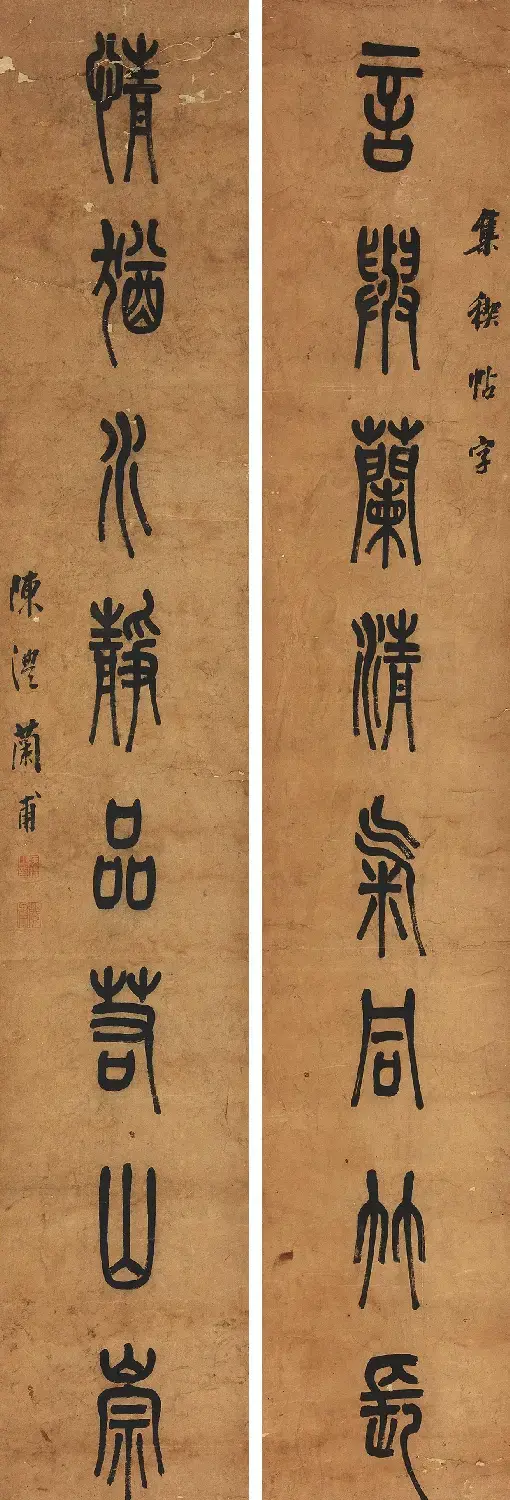 集禊帖字
言與蘭清氣同竹長
情猶水靜品若山崇
陳澧蘭甫